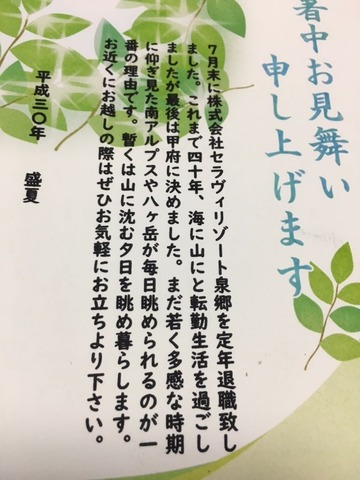 暑中お見舞い
申し上げます
7月末に株式会社セラヴィリゾート泉郷を定年退職致し
ました。これまで四十年、海に山にと転勤生活を過ごし
ましたが最後は甲府に決めました。まだ若く多感な時期
に仰ぎ見た南アルプスや八ヶ岳が毎日眺められるのが一
番の理由です。暫くは山に沈む夕日を眺め暮らします。
お近くにお越しの際はぜひお気軽にお立ちより下さい。
平成三〇年 盛夏